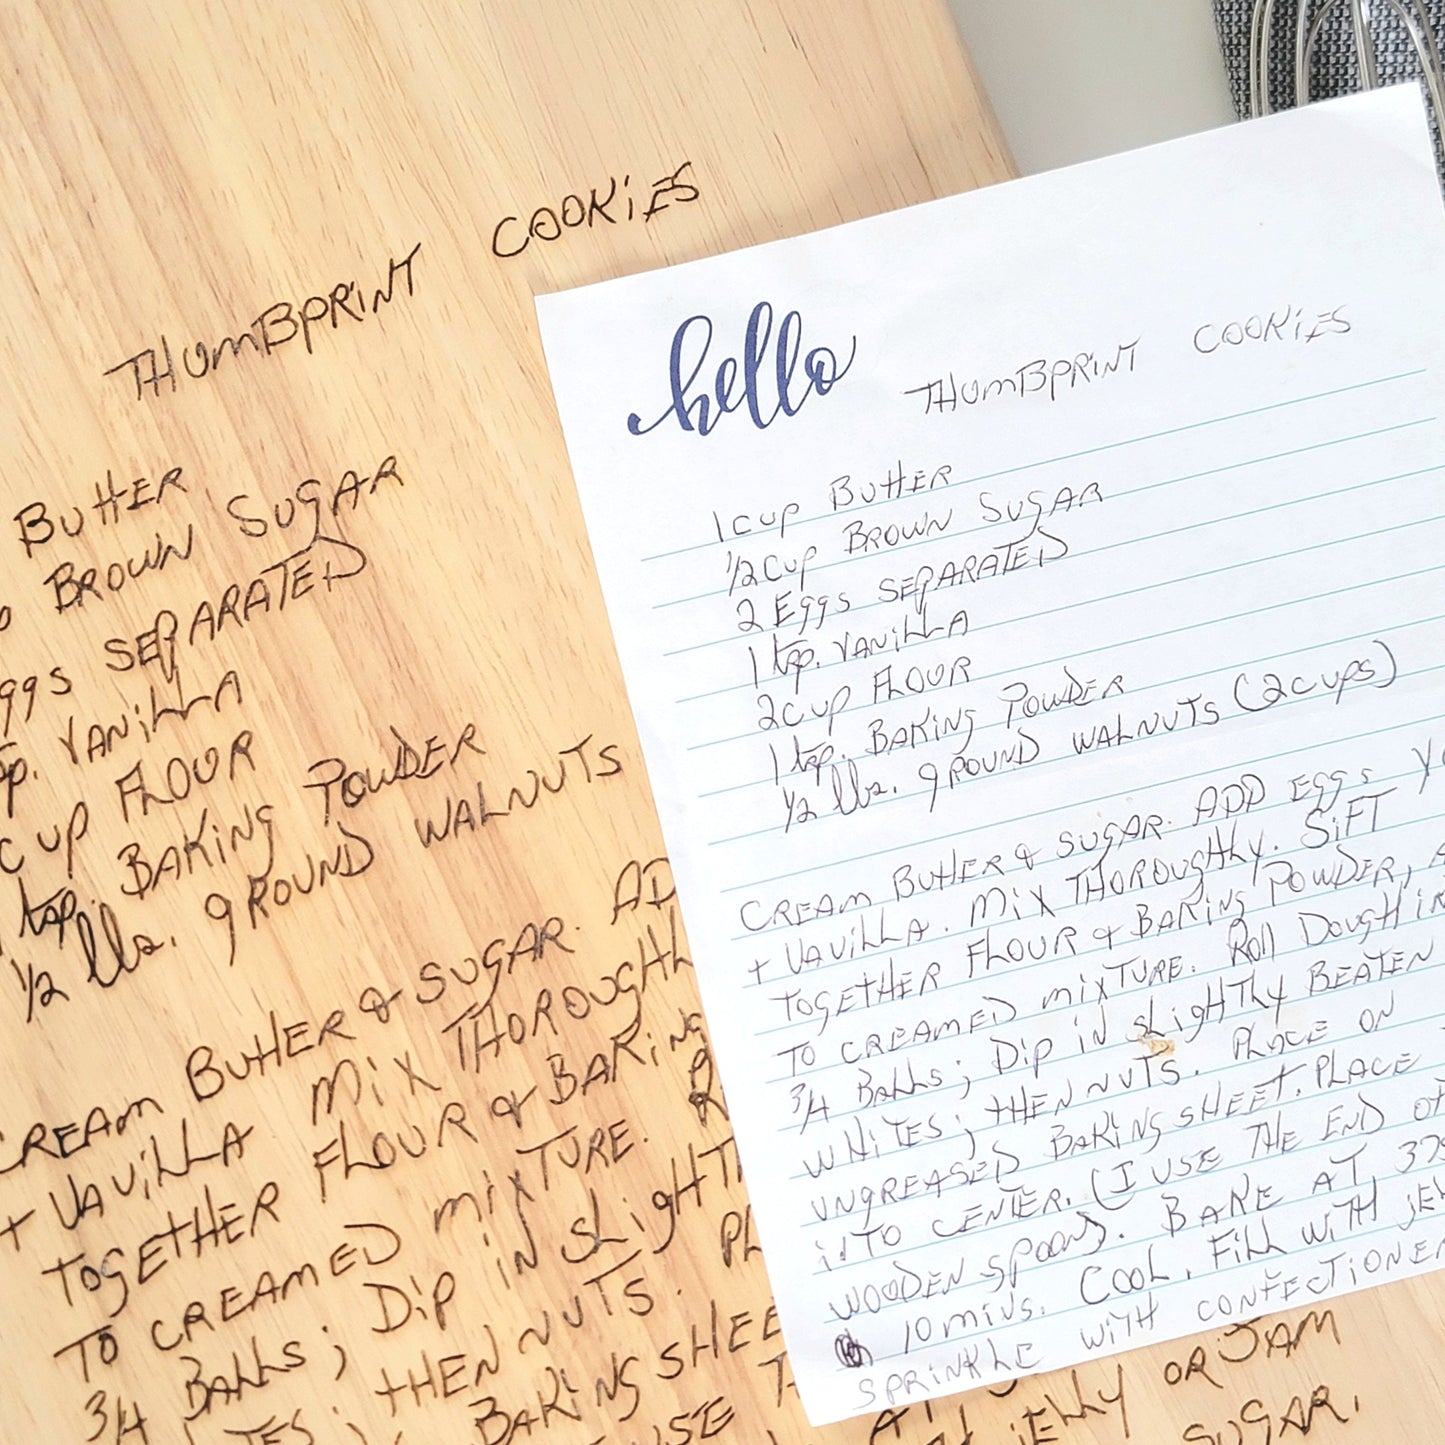 THUMBPRINT COOKIES
BUTTER
BROWN SUGAR
ggs SEPARATED
p. VANILLA
cup FLOUR
1 tsp. BAKING POWDER
1/2 lbs. gROUND WALNUTS
CREAM BUTTER & SUGAR. AD
+ VAVILLA MIX THOROUGHL
TOGETHER FLOUR & BAKINg
TO CREAMED MIXTURE. R
3/4 BALLS; DIP IN SLIGHT
TES; THEN NUTS. PL
BAKINg SHEE
USE T
JELLY OR JAM
SUGAR.
hello
THUMBPRINT COOKIES
1 cup BUTTER
1/2 cup BROWN SUGAR
2 Eggs SEPARATED
1 tsp. VANILLA
2 cup FLOUR
1 tsp. BAKINg POWDER
1/2 lbs. gROUND WALNUTS (2 cups)
CREAM BUTTER & SUGAR. ADD Eggs Y
+ VAVILLA. MIX THOROUGHLY. SIFT
TOGETHER FLOUR & BAKINg POWDER, A
TO CREAMED MIXTURE. Roll DOUGH IN
3/4 BALLS; DIP IN SLIGHTLY BEATEN
WHITES; THEN NUTS. PLACE ON
UNGREASED BAKINg SHEET. PLACE
INTO CENTER. (I USE THE END OF
WOODEN SPOON). BAKE AT 375
10 MINS. COOL. FILL WITH JEL
SPRINKLE WITH CONFECTIONER